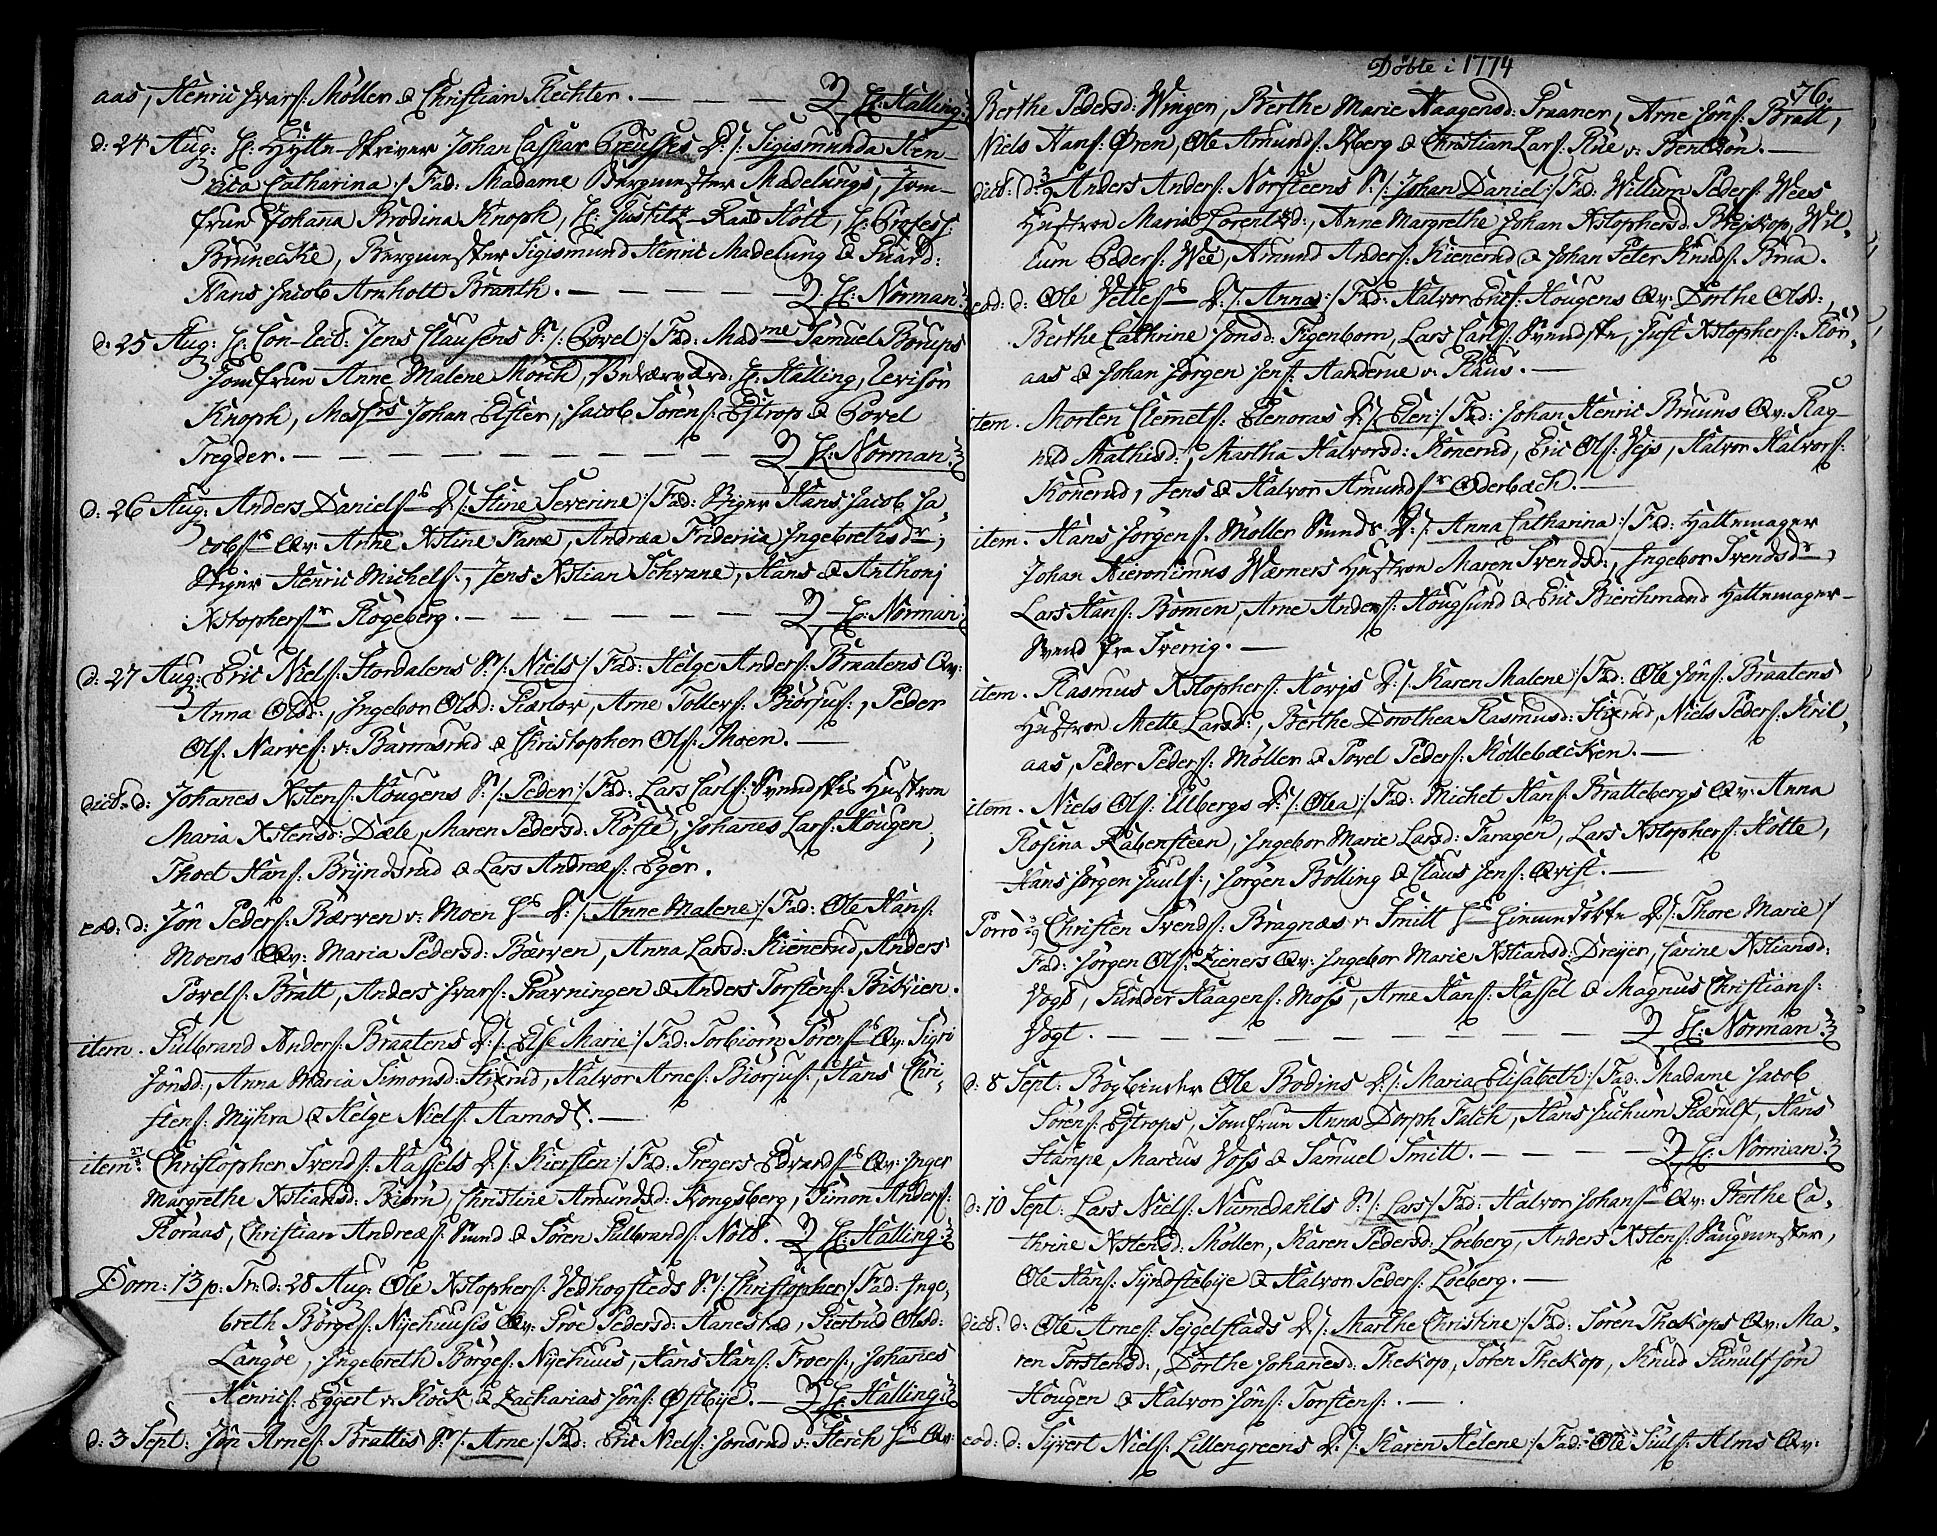 aas, Henric Ivars: Møller & Christian Rechter. — — — H: Halling.
d: 24 Aug: H: Hytte-Skriver Johan Caspar Preusses D: /: Sigismunda Hen-
rica Catharina :/ Fad: Madame Bergmester Madelungs, Jom-
frue Johana Brodina Knoph, H: Justitz-Raad Hott, H: Profess:
Brunecke, Bergmester Sigismund Henric Madelung & Stuard:
Hans Jacob Arnholt Branth. — — — — H: Norman.
d: 25 Aug: H: Con-lect: Jens Clausens S: /: Povel :/ Fad: Madme Samuel Borups
Jomfrue Anne Malene Monch, H: Halling,
Knoph, Messrs Johan Elster, Jacob Sørens: Estrop & Povel
Tregder. — — — — — — — H: Norman.
d: 26 Aug: Anders Daniels: D: /: Stine Severine :/ Fad: Stiger Hans Jacob Ja-
cobs: Qv: Anne Xstine Fane, Andrea Friderica Ingebrethsdr,
Stiger Henric Michels:, Jens Xstian Schrane, Hans & Anthonj
Xstophers: Rogeberg. — — — — — H: Norman.
d: 27 Aug: Eric Niels: Stordalens S: /: Niels :/ Fad: Helge Anders: Braatens Qv:
Anna Olsd:, Ingebor Olsd: Rærlov, Arne Tollevs: Biørsjus:, Peder
Ols: Narves: v: Barmsrud & Christopher Ols: Moen. —
dict: d: Johanes Xstens: Hougens S: /: Peder :/ Fad: Lars Carls: Svendskes Hustroe
Maria Xstensd: Dæle, Maren Pedersd: Roffe, Johanes Lars: Hougen,
Thoel Hans: Bryndsrud & Lars Andreæs: Eger.
eod: d: Jön Peders: Bærven v: Moen D: /: Anne Malene :/ Fad: Ole Hans:
Moens Qv: Maria Pedersd: Bærven, Anna Larsd: Kienerud, Anders
Povels: Bratt, Anders Ivars: Ravningen & Anders Torstens: Bilvien.
item. Gulbrand Anders: Braatens D: /: Else Marie :/ Fad: Torbiörn Sörens: Qv: Sigri
Jönsd:, Anna Maria Simonsd: Stixrud, Halvor Arnes: Biørsjus:, Hans Chri-
stens: Myhra & Helge Niels: Aamodt. —
item: Christopher Svends: Hassels D: /: Kiersten :/ Fad: Gregers Edvards: Qv: Inger
Margrethe Xstiansd: Biörn, Christine Amundsd: Kongsberg, Simon Anders:
Roraas, Christian Andreæs: Smed & Sören Gulbrands: Nold. H: Halling.
Dom: 13 p: Tr: d: 28 Aug: Ole Xstophers: Vedhogsteds S: /: Christopher :/ Fad: Inge-
breth Børges: Nyehuusis Qv: Siroe Pedersd: Hanestad, Giertrud Olsd:
Langöe, Ingebreth Borges: Nyehuus, Hans Hans: Froers:, Johannes
Henrics: Eggert v: Kock & Zacharias Jöns: Østbye. — H: Halling.
d: 3 Sept: Jön Arnes: Brattis S: /: Arne :/ Fad: Eric Niels: Jonsrud v: Sterch Qv:
Döbte i 1774
76.
Berthe Pedersd: Wingen, Berthe Marie Haagensd: Praanen, Arne Jöns: Bratt,
Niels Hans: Øren, Ole Amunds: Aberg & Christian Lars: Rue v: Berlsön. —
dict: d: Anders Anders: Norsteens S: /: Johan Daniel :/ Fad: Willum Peders: Wees
Hustroe Maria Lorentzd:, Anne Margrethe Johan Xstophersd: Biskop, Wil-
lum Peders: Wee, Amund Anders: Kienerud & Johan Peter Knuds: Brua.
eod: d: Ole Velles: D: /: Anna :/ Fad: Halvor Erics: Hougens Qv: Dorthe Olsd:,
Berthe Cathrine Jonsd: Figenborn, Lars Carls: Svendske, Just Xstophers: Rör-
aas & Johan Jörgen Jens: Aanderue v: Ruus. —
item. Morten Clemets: Elenoras D: /: Elen :/ Fad: Johan Henric Bruuns Qv: Rag-
nild Mathisd:, Martha Halvorsd: Konerud, Eric Ols: Vejs, Halvor Halvors:
Konerud, Jens & Halvor Amunds: Oderbæch. —
item. Hans Jørgens: Møller Svends D: /: Anna Catharina :/ Fad: Hattemager
Johan Hieronimus Wærners Hustroe Maren Svendsd:, Ingebor Svendsdr,
Lars Hans: Bomen, Arne Anders: Hougsund & Eric Bierchmand Hattemager-
Svend fra Sverrig. —
item. Rasmus Xstophers: Korjs D: /: Karen Malene :/ Fad: Ole Jöns: Braatens
Hustroe Mette Larsd:, Berthe Dorothea Rasmusd: Stixrud, Niels Peders: Kril-
aas, Peder Peders: Møller & Povel Peders: Kollebæcken. —
item. Niels Ols: Ulbergs D: /: Olea :/ Fad: Michel Hans: Brattebergs Qv: Anna
Rosina Rabensteen, Ingebor Marie Larsd: Faragen, Lars Xstophers: Hotte,
Hans Jörgen Juuls:, Jörgen Bölling & Claus Jens: Qvist. —
Porro: Christen Svends: Bragnæs v: Smitt hiemmedöbte D: /: Thore Marie :/
Fad: Jörgen Ols: Zieners Qv: Ingebor Marie Xstiansd: Dreyer, Carine Xstiansd:
Vogt, Gunder Haagens: Moss, Arne Hans: Hassel & Magnus Christians:
Vogt. — — — — — — — H: Norman.
d: 8 Sept: Bogbinder Ole Bodins D: /: Maria Elisabeth :/ Fad: Madame Jacob
Sörens: Estrops, Jomfrue Anna Dorph Falch, Hans Juchum Rærulf, Hans
Stampe, Marcus Voss & Samuel Smitt. — — — H: Norman.
d: 10 Sept: Lars Niels: Numedahls S: /: Lars :/ Fad: Halvor Johans: Qv: Berthe Ca-
thrine Xstensd: Møller, Karen Pedersd: Loeberg, Anders Xstens: Saugmester,
Ole Hans: Syndstebye & Halvor Peders: Loeberg. —
dict: d: Ole Arnes: Tejgelstads D: /: Marthe Christine :/ Fad: Sören Thekops Qv: Ma-
ren Torstensd:, Dorthe Johanesd: Thekop, Sören Thekop, Knud Gunulfsön
Hougen & Halvor Jöns: Torstens:. —
eod: d: Syvert Niels: Lillengreens D: /: Karen Helene :/ Fad: Ole Siuls: Alms Qv: